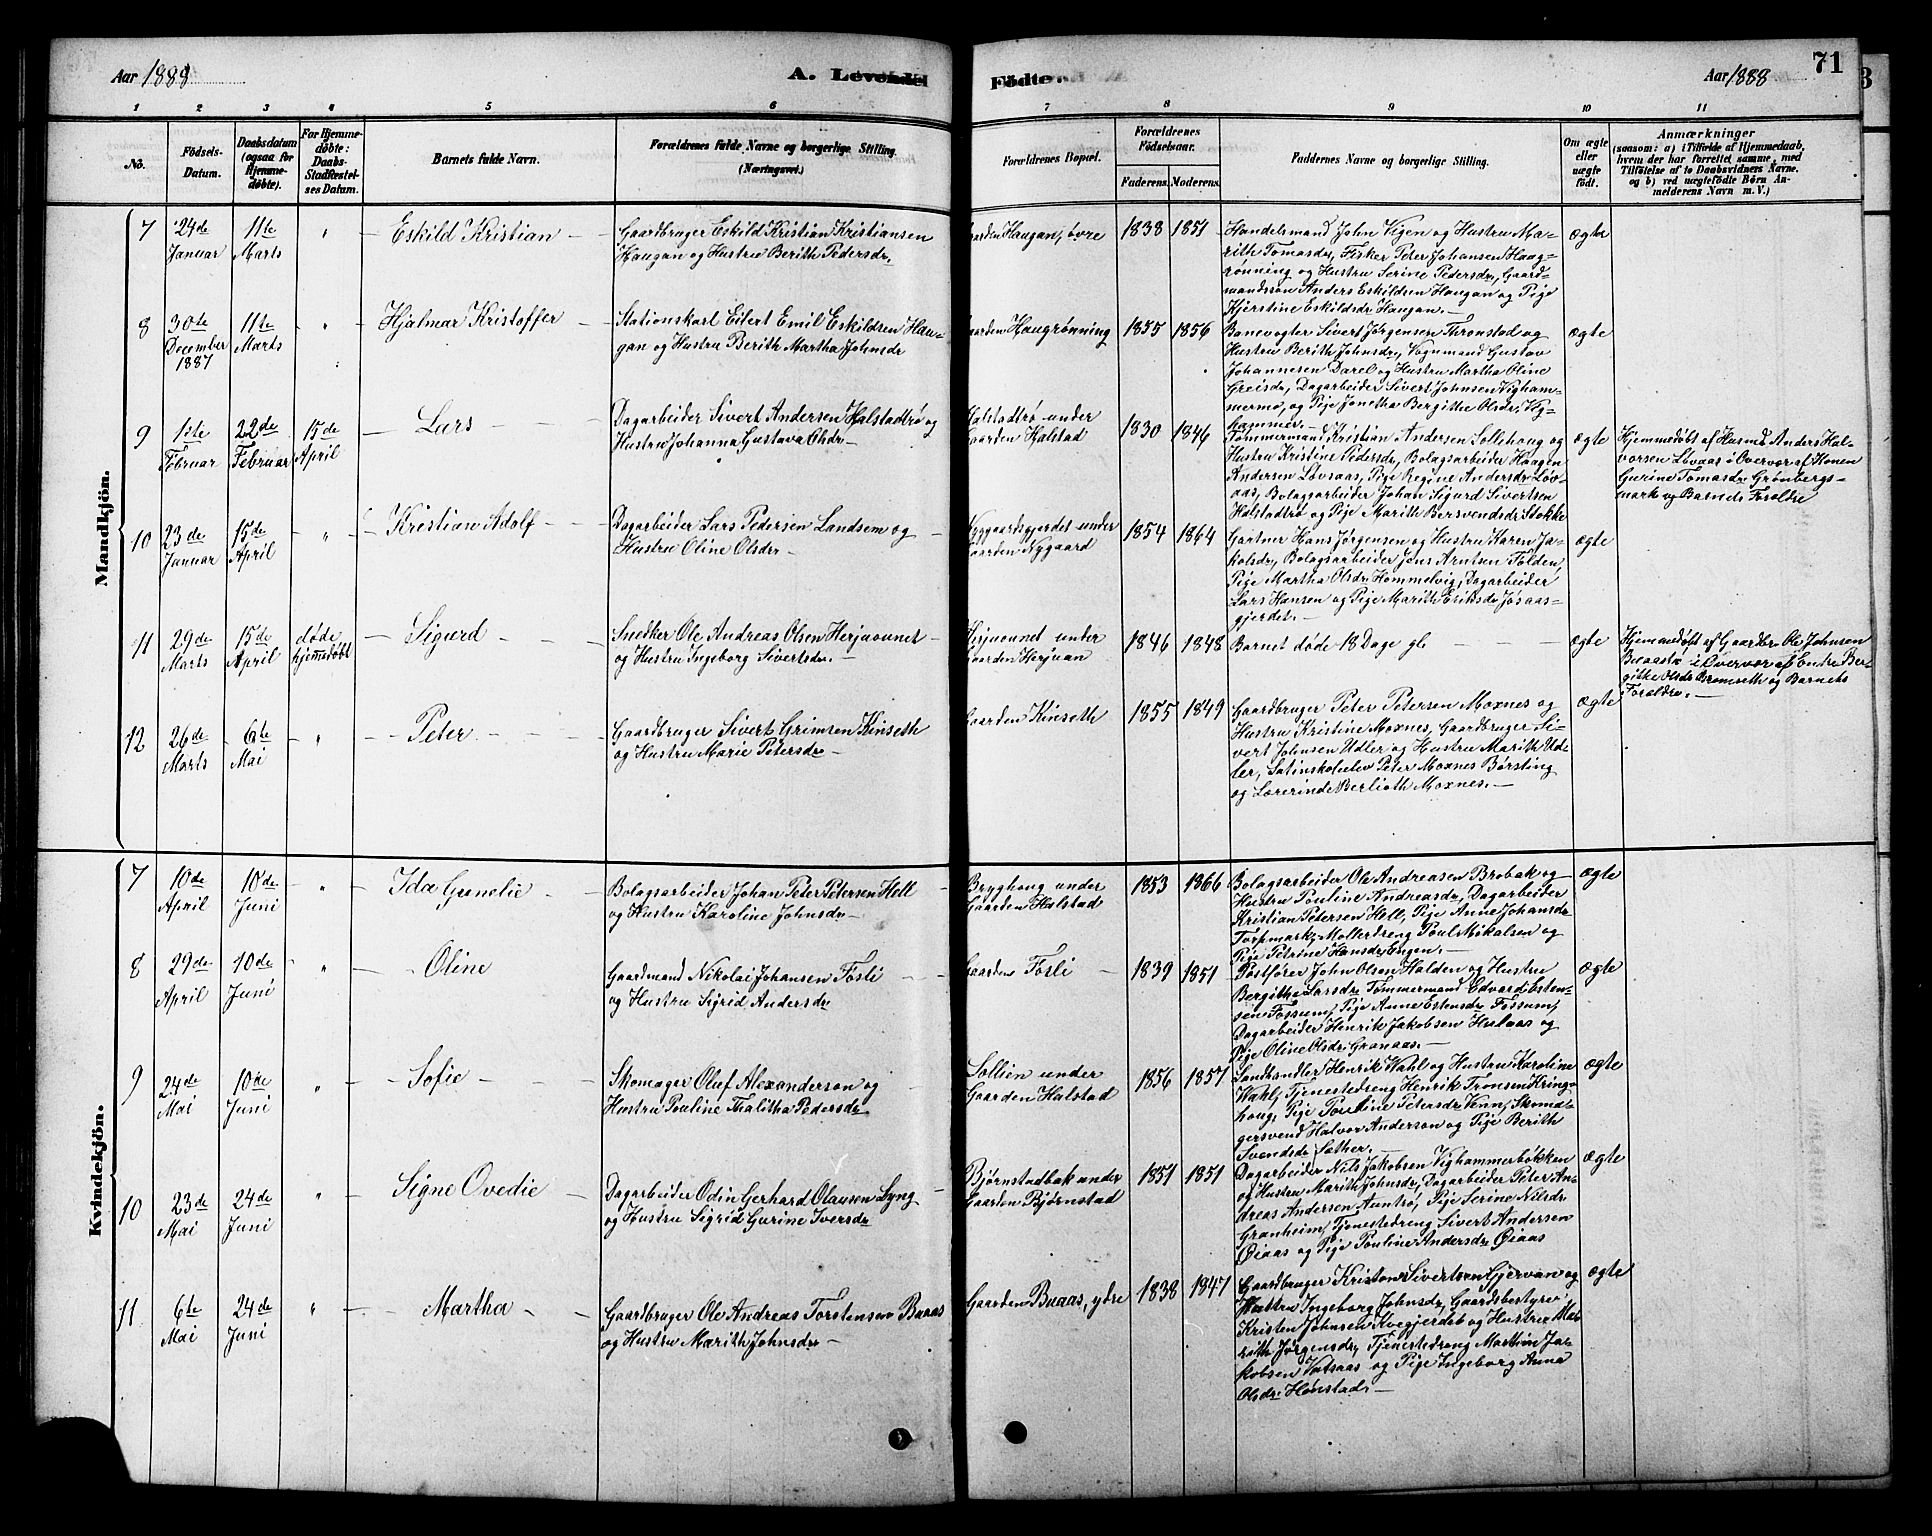 Aar 1888
A. Levende
Födte.
Aar 1888
71
1 2 3 4 5 6 7 8 9 10 11
No.
Födsels-
Datum.
Daabsdatum
(ogsaa for
Hjemme-
döbte).
For Hjemme-
döbte:
Daabs-
Stadfæstel-
ses Datum.
Barnets fulde Navn.
Forældrenes fulde Navne og borgerlige Stilling.
(Næringsvei.)
Forældrenes Bopæl.
Forældrenes
Födselsaar.
Faderens. Moderens.
Faddernes Navne og borgerlige Stilling.
Om ægte
eller
uægte
födt.
Anmærkninger
(saasom: a) i Tilfælde af Hjemmedaab,
hvem der har forrettet samme, med
Tilföielse af to Daabsvidners Navne,
og b) ved uægtefödte Börn An-
melderens Navn m. V.)
Mandkjön.
7
24de
Januar
11te
Marts
"
Eskild Kristian
Gaardbruger Eskild Kristian Kristiansen
Haugan og Hustru Berith Pedersdr.
Gaarden Haugan, övre
1838 1851
Handelsmand John Vigen og Hustru Ma-
rith Tomasdr, Fisker Peter Johansen Haug-
rønning og Hustru Serine Pedersdr, Gaard-
mandssøn Anders Eskildsen Haugan og Pige
Kjerstine Eskildsdr Haugan.
ægte
8
30te
December
1887
11te
Marts
"
Hjalmar Kristoffer
Stationskarl Eilert Emil Eskildsen Hau-
gan og Hustru Berith Martha Johnsdr
Gaarden Haugrønning
1855 1856
Banevogter Sivert Jørgensen Thronstad og
Hustru Berith Johnsdr, Vognmand Gustav
Johannesen Darel og Hustru Martha Oline
Greisdr, Dagarbeider Sivert Johnsen Vigham-
mermo, og Pige Jonetha Bergitha Olsdr, Vig-
hammer.
ægte
9
1ste
Februar
22de
Februar
15de
April
Lars
Dagarbeider Sivert Andersen Halstadtrø og
Hustru Johanna Gustava Olsdr
Halstadtrø under
Gaarden Halstad
1830 1846
Tømmermand Kristian Andersen Sollihoug og
Hustru Kristine Pedersdr, Bolagsarbeider Haagen
Andersen Løvaas, Pige Regine Andersdr Løv-
aas, Bolagsarbeider Johan Sigurd Sivertsen
Halstadtrø og Pige Marith Bersvendsdr Stokke
ægte
Hjemmedøbt af Husmd Anders Hal-
vorsen Løvaas i Overvær af Konen
Gurine Tomasdr Grønbergs-
mark og Barnets Forældre
10
23de
Januar
15de
April
"
Kristian Adolf
Dagarbeider Lars Pedersen Landsem og
Hustru Oline Olsdr
Nygaardsgjerdet under
Gaarden Nygaard
1854 1864
Gartner Hans Jørgensen og Hustru Karen Ja-
kobsdr, Bolagsarbeider Jens Arntsen Folden,
Pige Martha Olsdr Hommelvig, Dagarbeider
Lars Hansen og Pige Marith Eriksdr Jøsaas-
gjerdet.
ægte
11
29de
Marts
15de
April
døde
hjemmedøbt
Sigurd
Snedker Ole Andreas Olsen Herjuaunet
og Hustru Ingeborg Sivertsdr.
Herjuaunet under
Gaarden Herjuan
1846 1848
Barnet døde 18 Dage gl.
ægte
Hjemmedøbt af Gaardbr Ole Johnsen
i Overvær af Enke Ber-
gitte Olsdr Brømseth og Barnets
Forældre.
12
26de
Marts
6te
Mai
"
Peter
Gaardbruger Sivert Grimsen Kinseth
og Hustru Marie Petersdr
Gaarden Kinseth
1855 1849
Gaardbruger Peter Petersen Moxnes og
Hustru Kristine Moxnes, Gaardbruger Si-
vert Johnsen Udler og Hustru Marith Ud-
ler, Latinskolelev Peter Moxnes Børsting
og Lærerinde Berlioth Moxnes.
ægte
Kvindekjön.
7
10de
April
10de
Juni
"
Ida Gunelie
Bolagsarbeider Johan Peter Petersen Hell
og Hustru Karoline Johnsdr
Bryghoug under
Gaarden Halstad
1853 1866
Bolagsarbeider Ole Andreasen Brobak og
Hustru Pouline Andreasdr, Dagarbeider
Kristian Petersen Hell, Pige Anne Johansdr
Torpmark, Mollerdreng Poul Mikalsen og
Pige Petrine Hansdr Engen.
ægte
8
29de
April
10de
Juni
"
Oline
Gaardmand Nikolai Johansen Fosli
og Hustru Sigrid Andersdr
Gaarden Fosli
1839 1851
Postfører John Olsen Halden og Hustru
Bergitha Larsdr Tømmermand Edvard Esten-
sen Fossum, Pige Anne Estensdr Fossum,
Dagarbeider Henrik Jakobsen Hulaas og
Pige Oline Olsdr Granaas.
ægte
9
24de
Mai
10de
Juni
"
Sofie
Skomager Oluf Alexanderson og
Hustru Pouline Thalitha Pedersdr
Sollien under
Gaarden Halstad
1856 1857
Landhandler Henrik Wahl og Hustru Karoline
Wahl, Tjenestedreng Henrik Tronsen Kringe-
houg, Pige Pouline Petersdr Venn, Skoma-
gersvend Halvor Anderson og Pige Berith
Svendsdr Sæther.
ægte
10
23de
Mai
24de
Juni
"
Signe Ovedie
Dagarbeider Odin Gerhard Olausen Lyng
og Hustru Sigrid Gurine Iversdr
Bjørnstadbak under
Gaarden Bjørnstad
1851 1851
Dagarbeider Nils Jakobsen Vighammerbakken
og Hustru Marith Johnsdr, Dagarbeider Peter An-
dreas Andersen Auntrø, Pige Serine Nilsdr
Granheim, Tjenestedreng Sivert Andersen
Øiaas og Pige Pouline Andersdr Øiaas
ægte
11
6te
Mai
24de
Juni
"
Martha
Gaardbruger Ole Andreas Torstensen Buaas
og Hustru Marith Johnsdr
Gaarden Buaas, ydre
1838 1847
Gaardbruger Kristen Sivertsen Gjervan og
Hustru Ingeborg Johnsdr, Gaardsbestyrer
Kristen Johnsen Kvegjerdet og Hustru Ma-
rith Jørgensdr, Tjenestedreng Martin Ja-
kobsen Vatsaas og Pige Ingeborg Anna
Olsdr Hønstad.
ægte